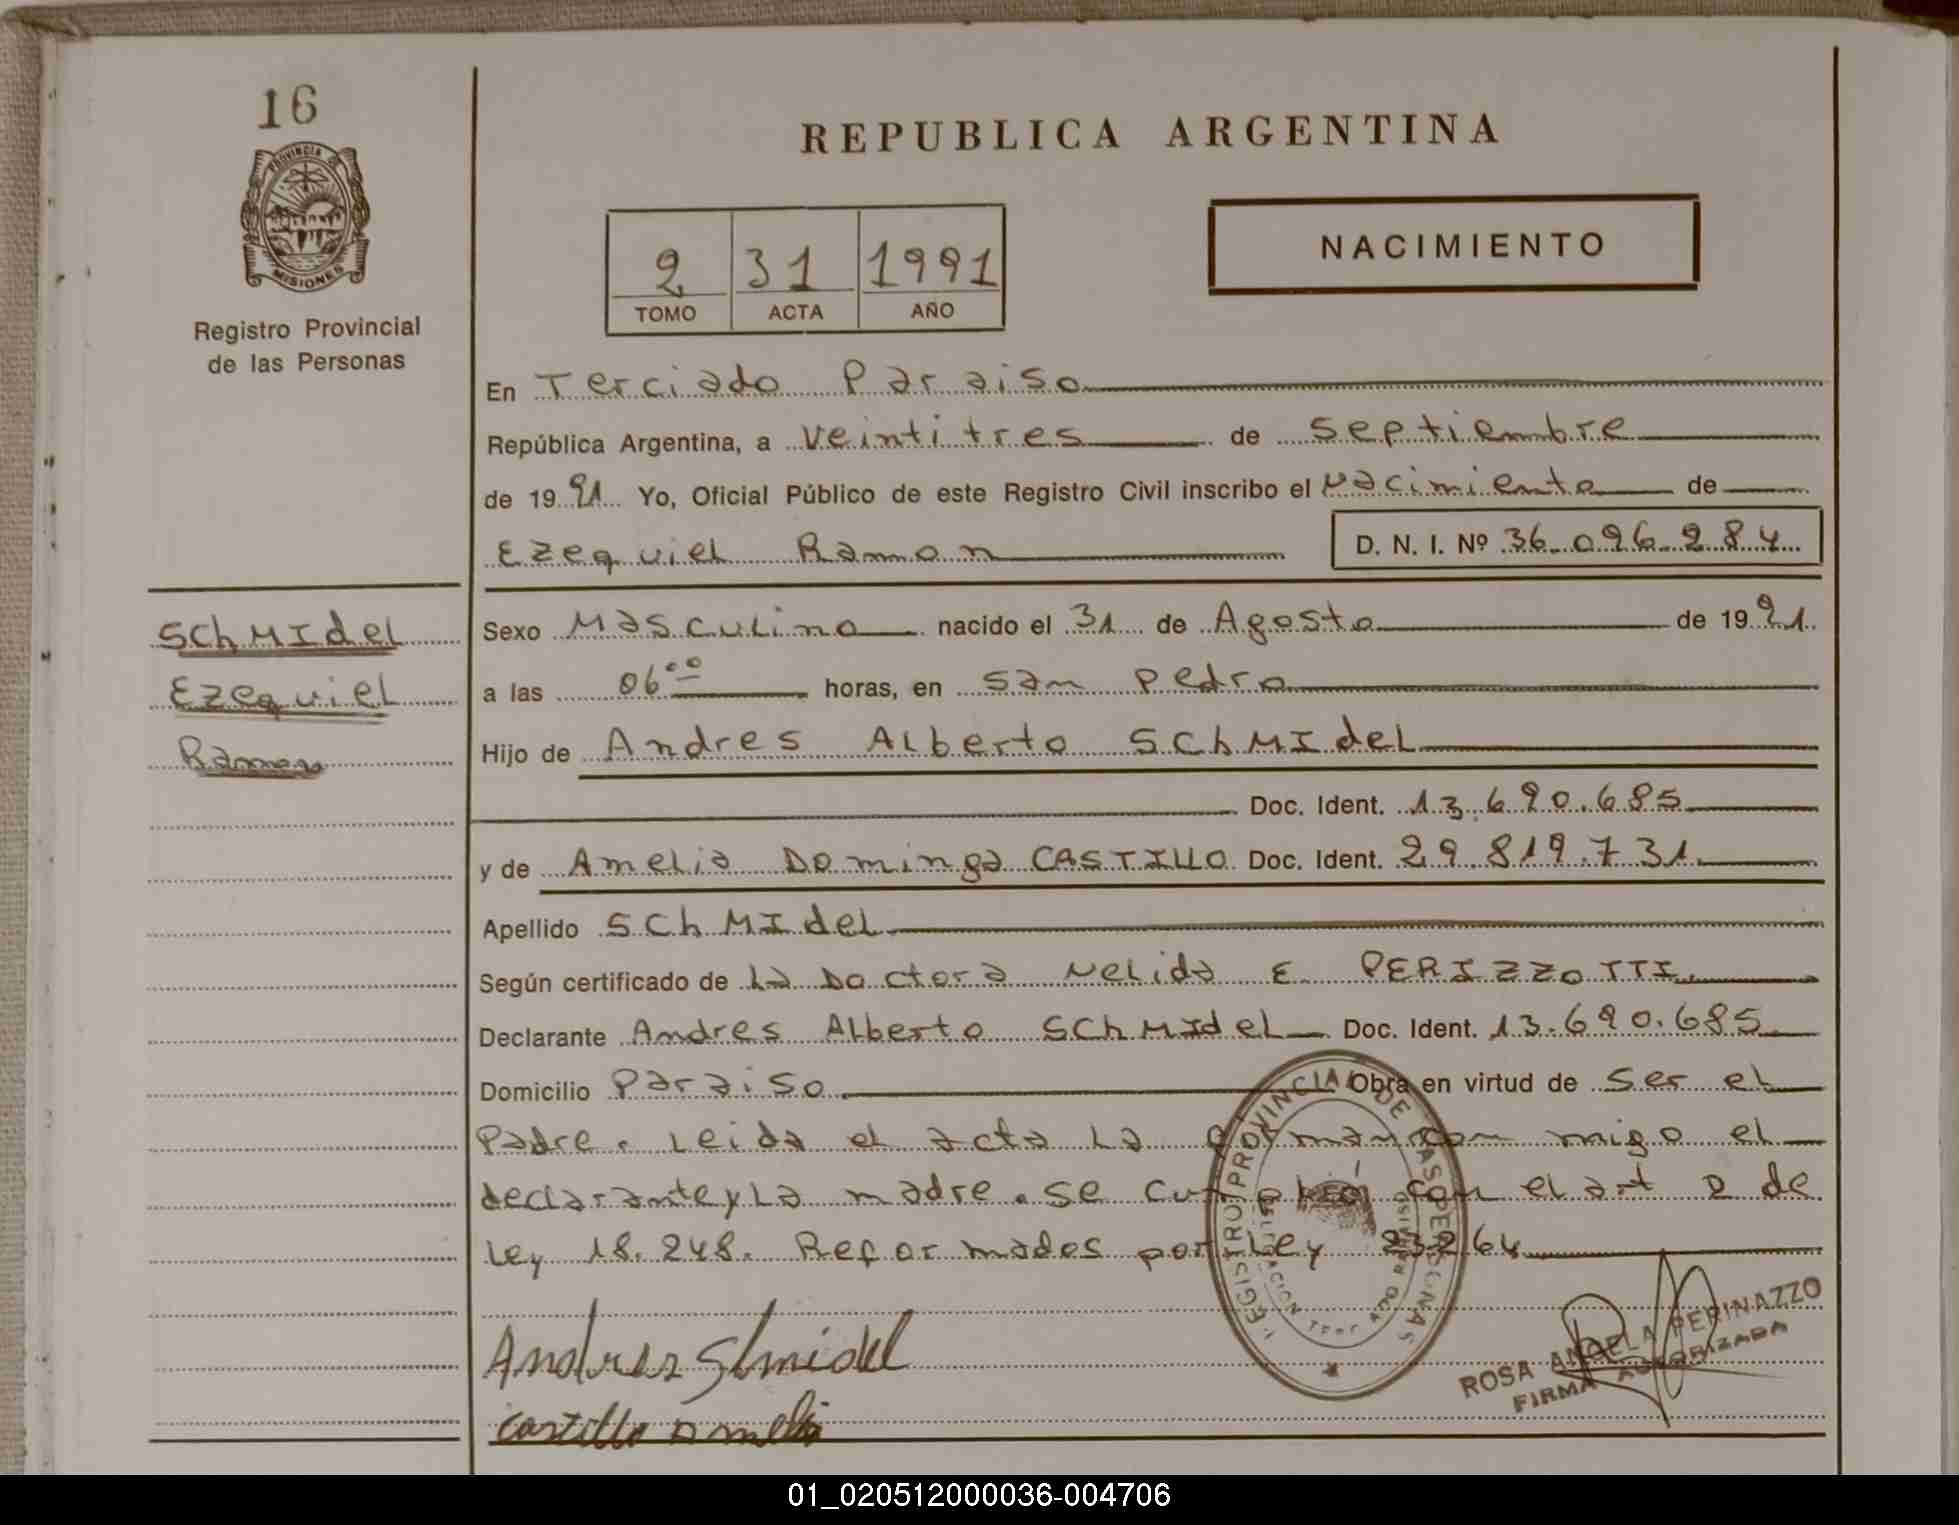 16
PROVINCIA DE
MISIONES
Registro Provincial
de las Personas
REPUBLICA ARGENTINA
2 31 1991
TOMO ACTA AÑO
NACIMIENTO
En Terciado Paraiso
República Argentina, a veintitres de septiembre
de 1991 Yo, Oficial Público de este Registro Civil inscribo el Nacimiento de
Ezequiel Ramon D. N. I. Nº 36.096.284
SChMIdel
Ezequiel
Ramon
Sexo Masculino nacido el 31 de Agosto de 1991
a las 06⁰⁰ horas, en san pedro
Hijo de Andres Alberto SChMIdel
Doc. Ident. 13.690.685
y de Amelia Dominga CASTILLO Doc. Ident. 29.819.731
Apellido SChMIdel
Según certificado de La Doctora Nelida E PERIZZOTTI
Declarante Andres Alberto SChMIdel Doc. Ident. 13.690.685
Domicilio Paraiso Obra en virtud de ser el
Padre. Leida el acta la firman con migo el
declarante y la madre. se cumplio con el art 2 de
Ley 18.248. Reformados por Ley 23264
REGISTRO PROVINCIAL DE LAS PERSONAS
Andres Shmidel
castillo Amelia
ROSA ANGELA PERINAZZO
FIRMA AUTORIZADA
01_020512000036-004706